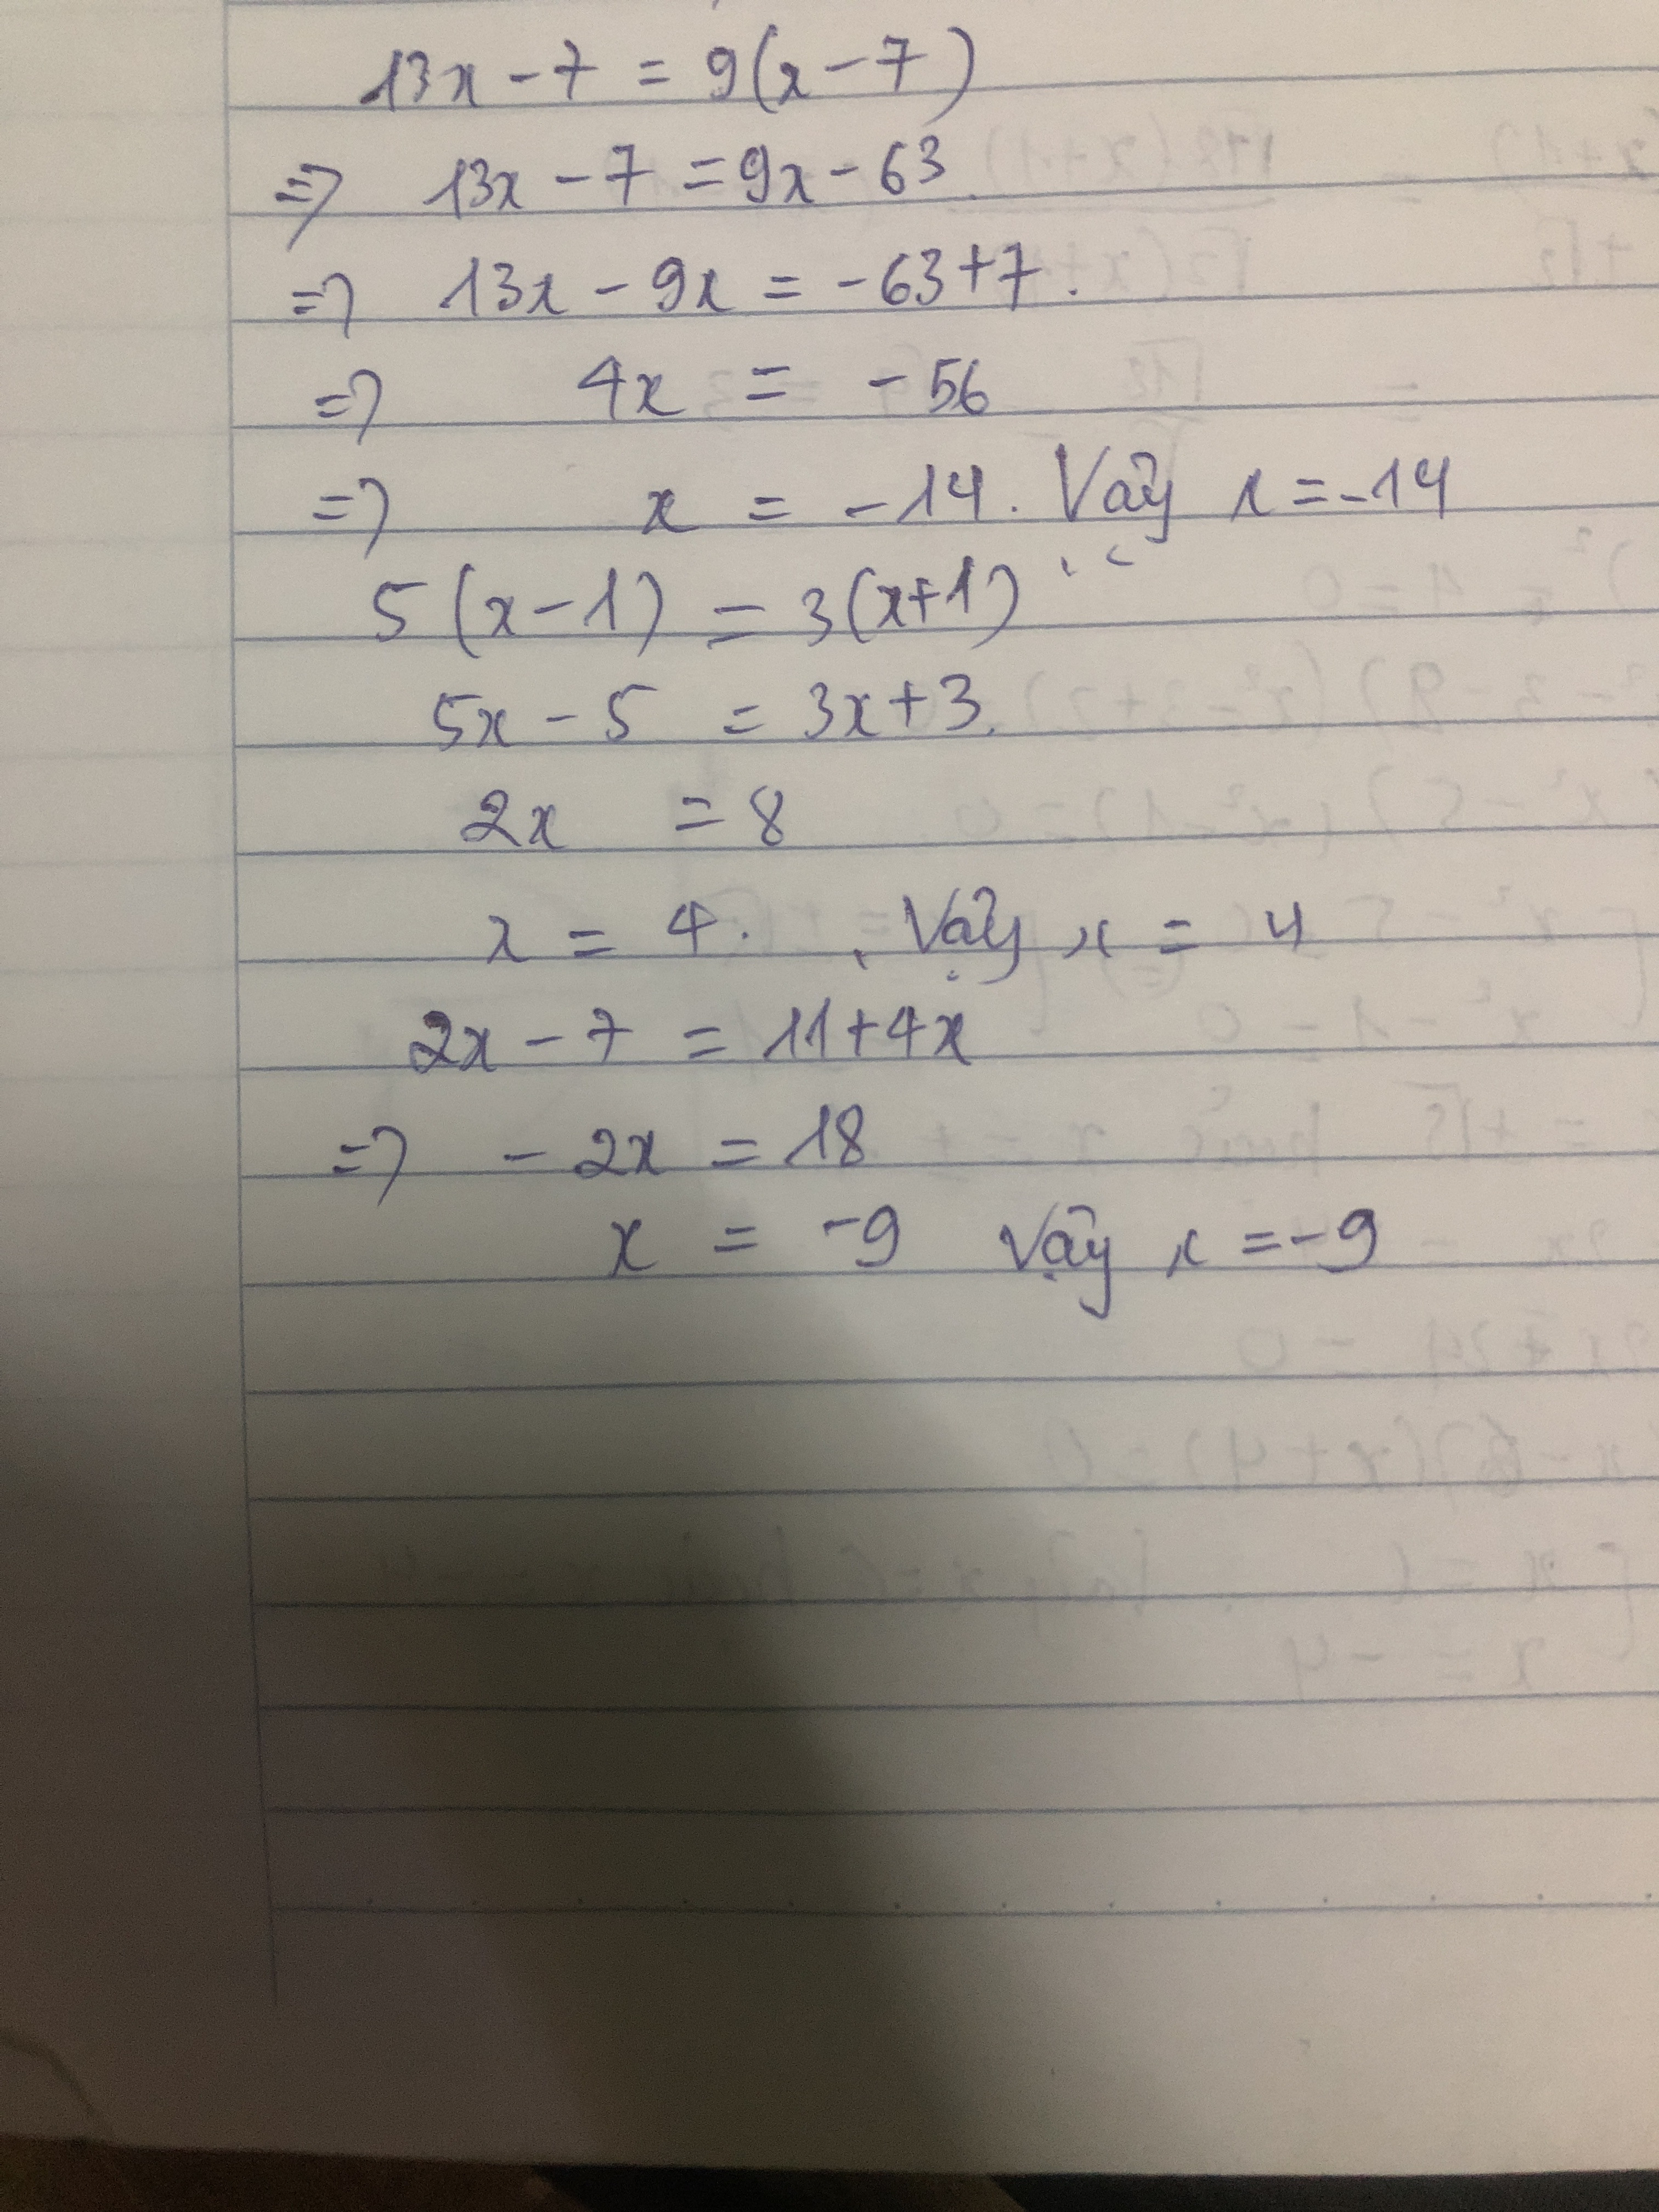 13x - 7 = 9(x - 7)
=> 13x - 7 = 9x - 63
=> 13x - 9x = -63 + 7.
=> 4x = -56
=> x = -14. Vậy x = -14
5(x - 1) = 3(x + 1)
5x - 5 = 3x + 3.
2x = 8
x = 4. Vậy x = 4
2x - 7 = 11 + 4x
=> -2x = 18
x = -9 Vậy x = -9